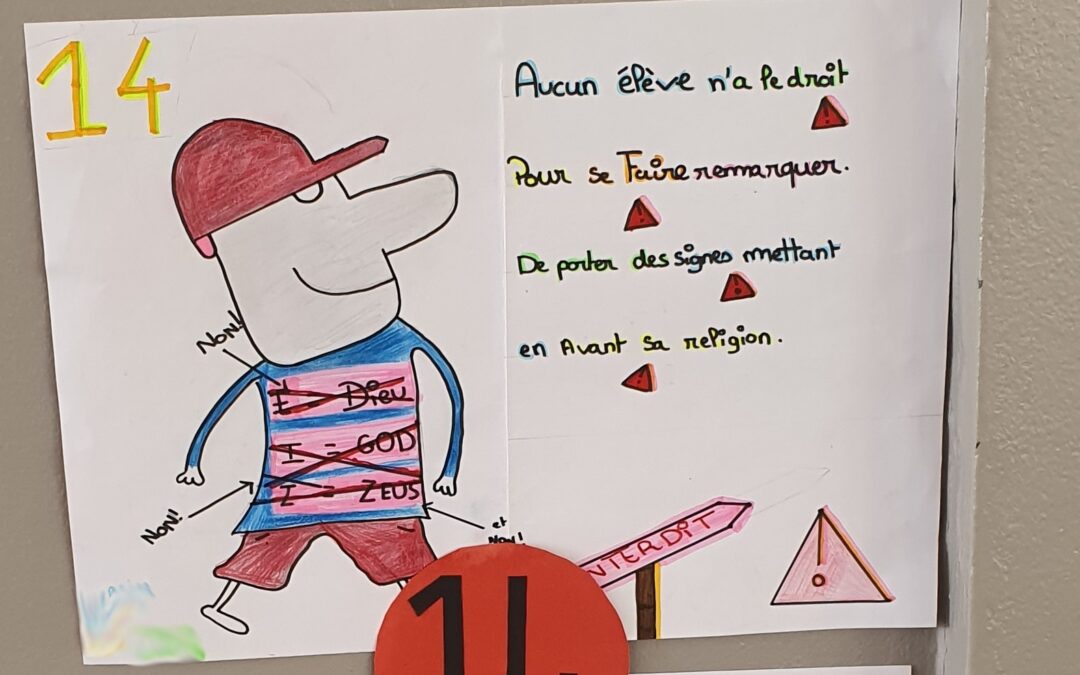 14
Aucun élève n'a le droit
Pour se Faire remarquer.
De porter des signes mettant
en Avant sa religion.
NON!
I = Dieu
I = GOD
I = ZEUS
NON!
et
NON!
INTERDIT